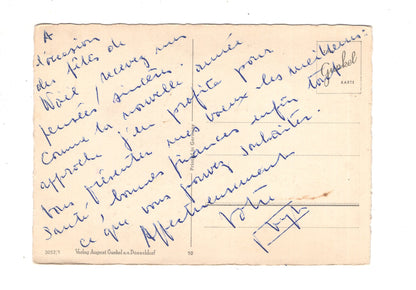 A
l'occasion
des fêtes de
Noël, recevez mes
pensées sincères.
Comme la nouvelle année
approche j'en profite pour
vous présenter mes voeux les meilleurs:
santé, bonnes finances enfin tout
ce que vous pouvez souhaiter.
Affectueusement
Votre
Gunkel
KARTE
Printed in Germany
2057/3
Verlag August Gunkel o.n. Düsseldorf
10